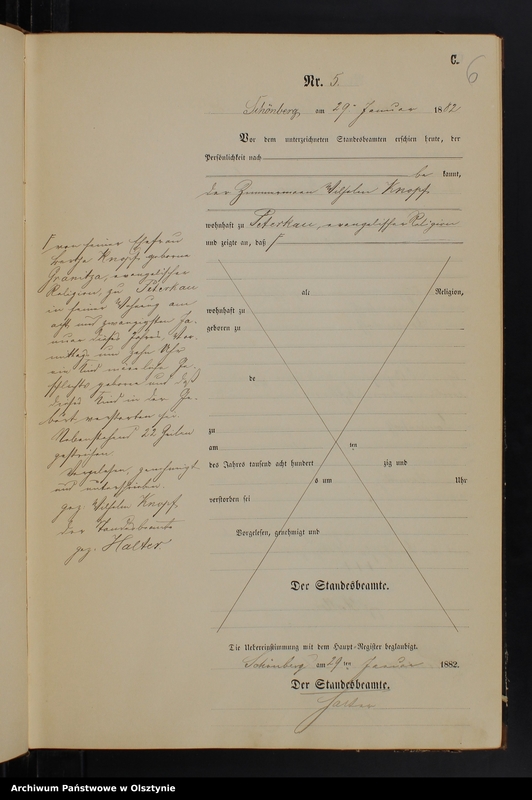 C.
6
Nr. 5.
Schönberg, am 29. Januar 1882
Vor dem unterzeichneten Standesbeamten erschien heute, der
Persönlichkeit nach
be kannt,
der Zimmermann Wilhelm Knopf.
wohnhaft zu Peterkau, evangelischer Religion
und zeigte an, daß Γ
Γ von seiner Ehefrau
Knopf geborene
Granitza, evangelischer
Religion, zu Peterkau
in seiner Wohnung am
acht und zwanzigsten Ja-
nuar dieses Jahres, Vor-
mittags um zehn Uhr
ein Kind männlichen Ge-
schlechts geboren und daß
dieses Kind in der Ge-
burt verstorben sei.
Nebenstehend 22 Zeilen
gestrichen.
Vorgelesen, genehmigt
und unterschrieben.
gez. Wilhelm Knopf.
Der Standesbeamte
gez. Halter.
alt Religion,
wohnhaft zu
geboren zu
de
zu
am ten
des Jahres tausend acht hundert zig und
o um Uhr
verstorben sei
Vorgelesen, genehmigt und
Der Standesbeamte.
Die Uebereinstimmung mit dem Haupt-Register beglaubigt.
Schönberg am 29 ten Januar 1882.
Der Standesbeamte.
Halter
Archiwum Państwowe w Olsztynie